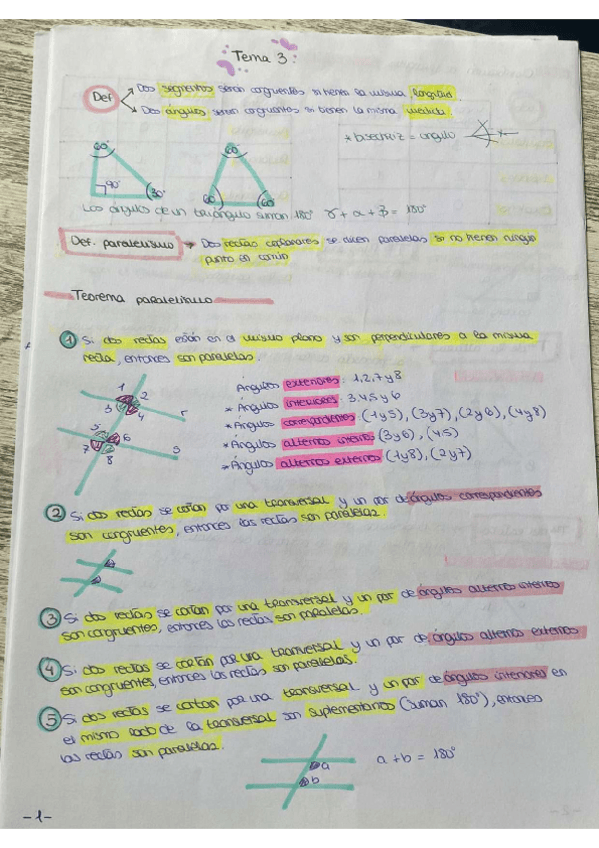 Tema 3:
Def → Dos segmentos serán congruentes si tienen la misma longitud.
→ Dos ángulos serán congruentes si tienen la misma medida.
* bisectriz = ángulo
60° 60°
90° 30° 60° 60°
Los ángulos de un triángulo suman 180° γ + α + β = 180°
Def. paralelismo → Dos rectas coplanares se dicen paralelas si no tienen ningún
punto en común
Teorema paralelismo
① Si dos rectas están en el mismo plano y son perpendiculares a la misma
recta, entonces son paralelas.
1 2 3 4 r
5 6 7 8 s
Ángulos exteriores: 1,2,7 y 8
* Ángulos interiores: 3,4,5 y 6
* Ángulos correspondientes (1 y 5), (3 y 7), (2 y 6), (4 y 8)
* Ángulos alternos internos (3 y 6), (4 y 5)
* Ángulos alternos externos (1 y 8), (2 y 7)
② Si dos rectas se cortan por una transversal y un par de ángulos correspondientes
son congruentes, entonces las rectas son paralelas.
③ Si dos rectas se cortan por una transversal y un par de ángulos alternos internos
son congruentes, entonces las rectas son paralelas.
④ Si dos rectas se cortan por una transversal y un par de ángulos alternos externos
son congruentes, entonces las rectas son paralelas.
⑤ Si dos rectas se cortan por una transversal y un par de ángulos interiores en
el mismo lado de la transversal son suplementarios (suman 180°), entonces
las rectas son paralelas.
a
b
a + b = 180°
-1-